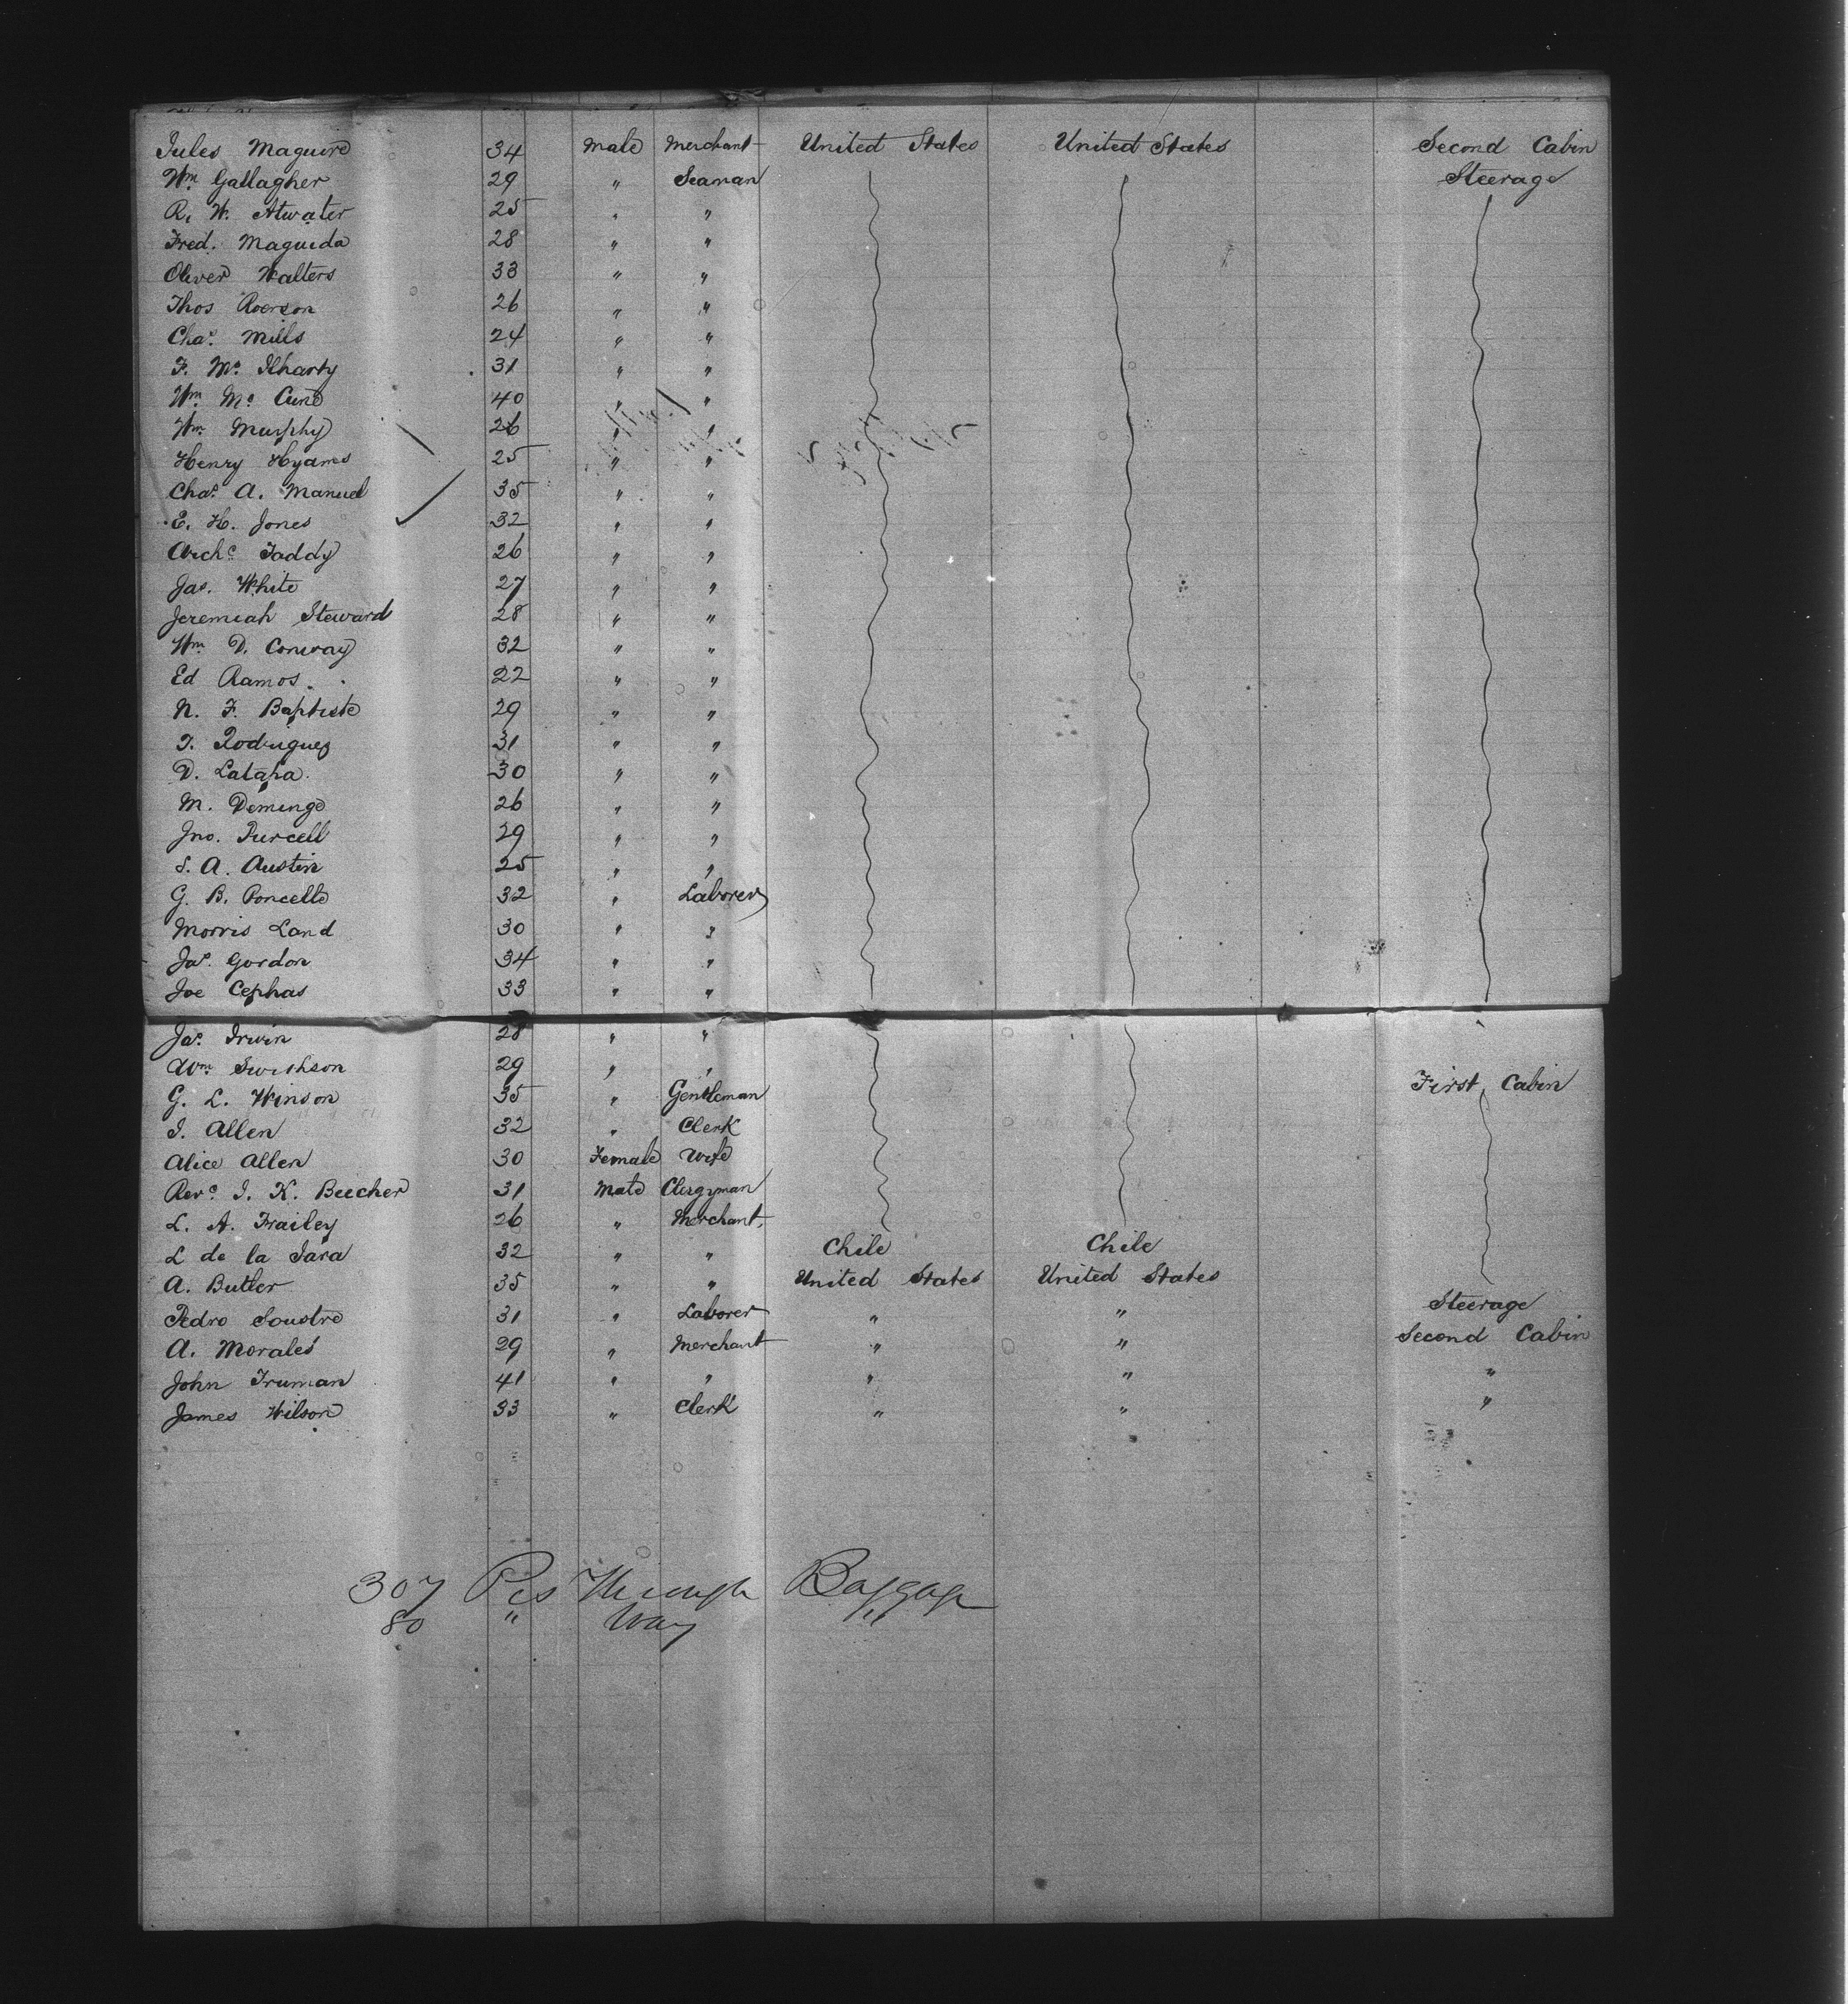 Jules Maguire 34 Male Merchant United States United States Second Cabin
Wm Gallagher 29 " Seaman Steerage
R. W. Atwater 25 " "
Fred. Maguida 28 " "
Oliver Walters 33 " "
Thos 26 " "
Chas. Mills 24 " "
F. Mc 31 " "
Wm. Mc Cune 40 " "
Wm. Murphy 26 " "
Henry Hyams 25 " "
Chas. A. Manuel 35 " "
E. H. Jones 32 " "
Archd Taddy 26 " "
Jas. White 27 " "
Jeremiah Steward 28 " "
Wm. D. Conway 32 " "
Ed Ramos 22 " "
N. F. Baptiste 29 " "
T. Rodriguez 31 " "
D. Latapa 30 " "
M. Demingo 26 " "
Jno. Purcell 29 " "
S. A. Austin 25 " "
G. B. Poncello 32 " Laborer
Morris Land 30 " "
Jas. Gordon 34 " "
Joe Cephas 33 " "
Jas. Irwin 28 " "
Wm. 29 " "
G. L. Winson 35 " Gentleman First Cabin
I. Allen 32 " Clerk
Alice Allen 30 Female Wife
Revd. I. K. Beecher 31 Male Clergyman
L. A. Frailey 26 " Merchant.
L de la Jara 32 " " Chile Chile
A. Butler 35 " " United States United States
Pedro Soustre 31 " Laborer " " Steerage
A. Morales 29 " Merchant " " Second Cabin
John Truman 41 " " " " "
James Wilson 33 " Clerk " " "
307 Pcs Through Baggage
80 " Way "